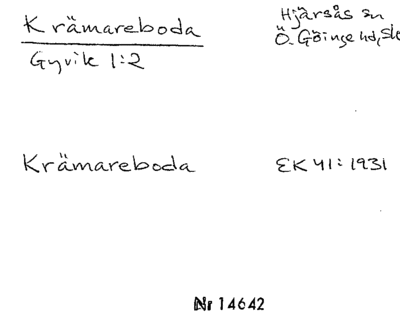 Krämareboda
Gyvik 1:2
Hjärsås sn
Ö. Göinge hd,
Krämareboda
EK 41: 1931
Nr 14642